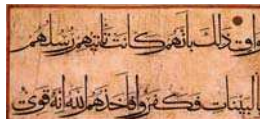 واق ذلك بانهم كانت تاتيهم رسلهم
بالبينات فكفروا فاخذهم الله انه قوى